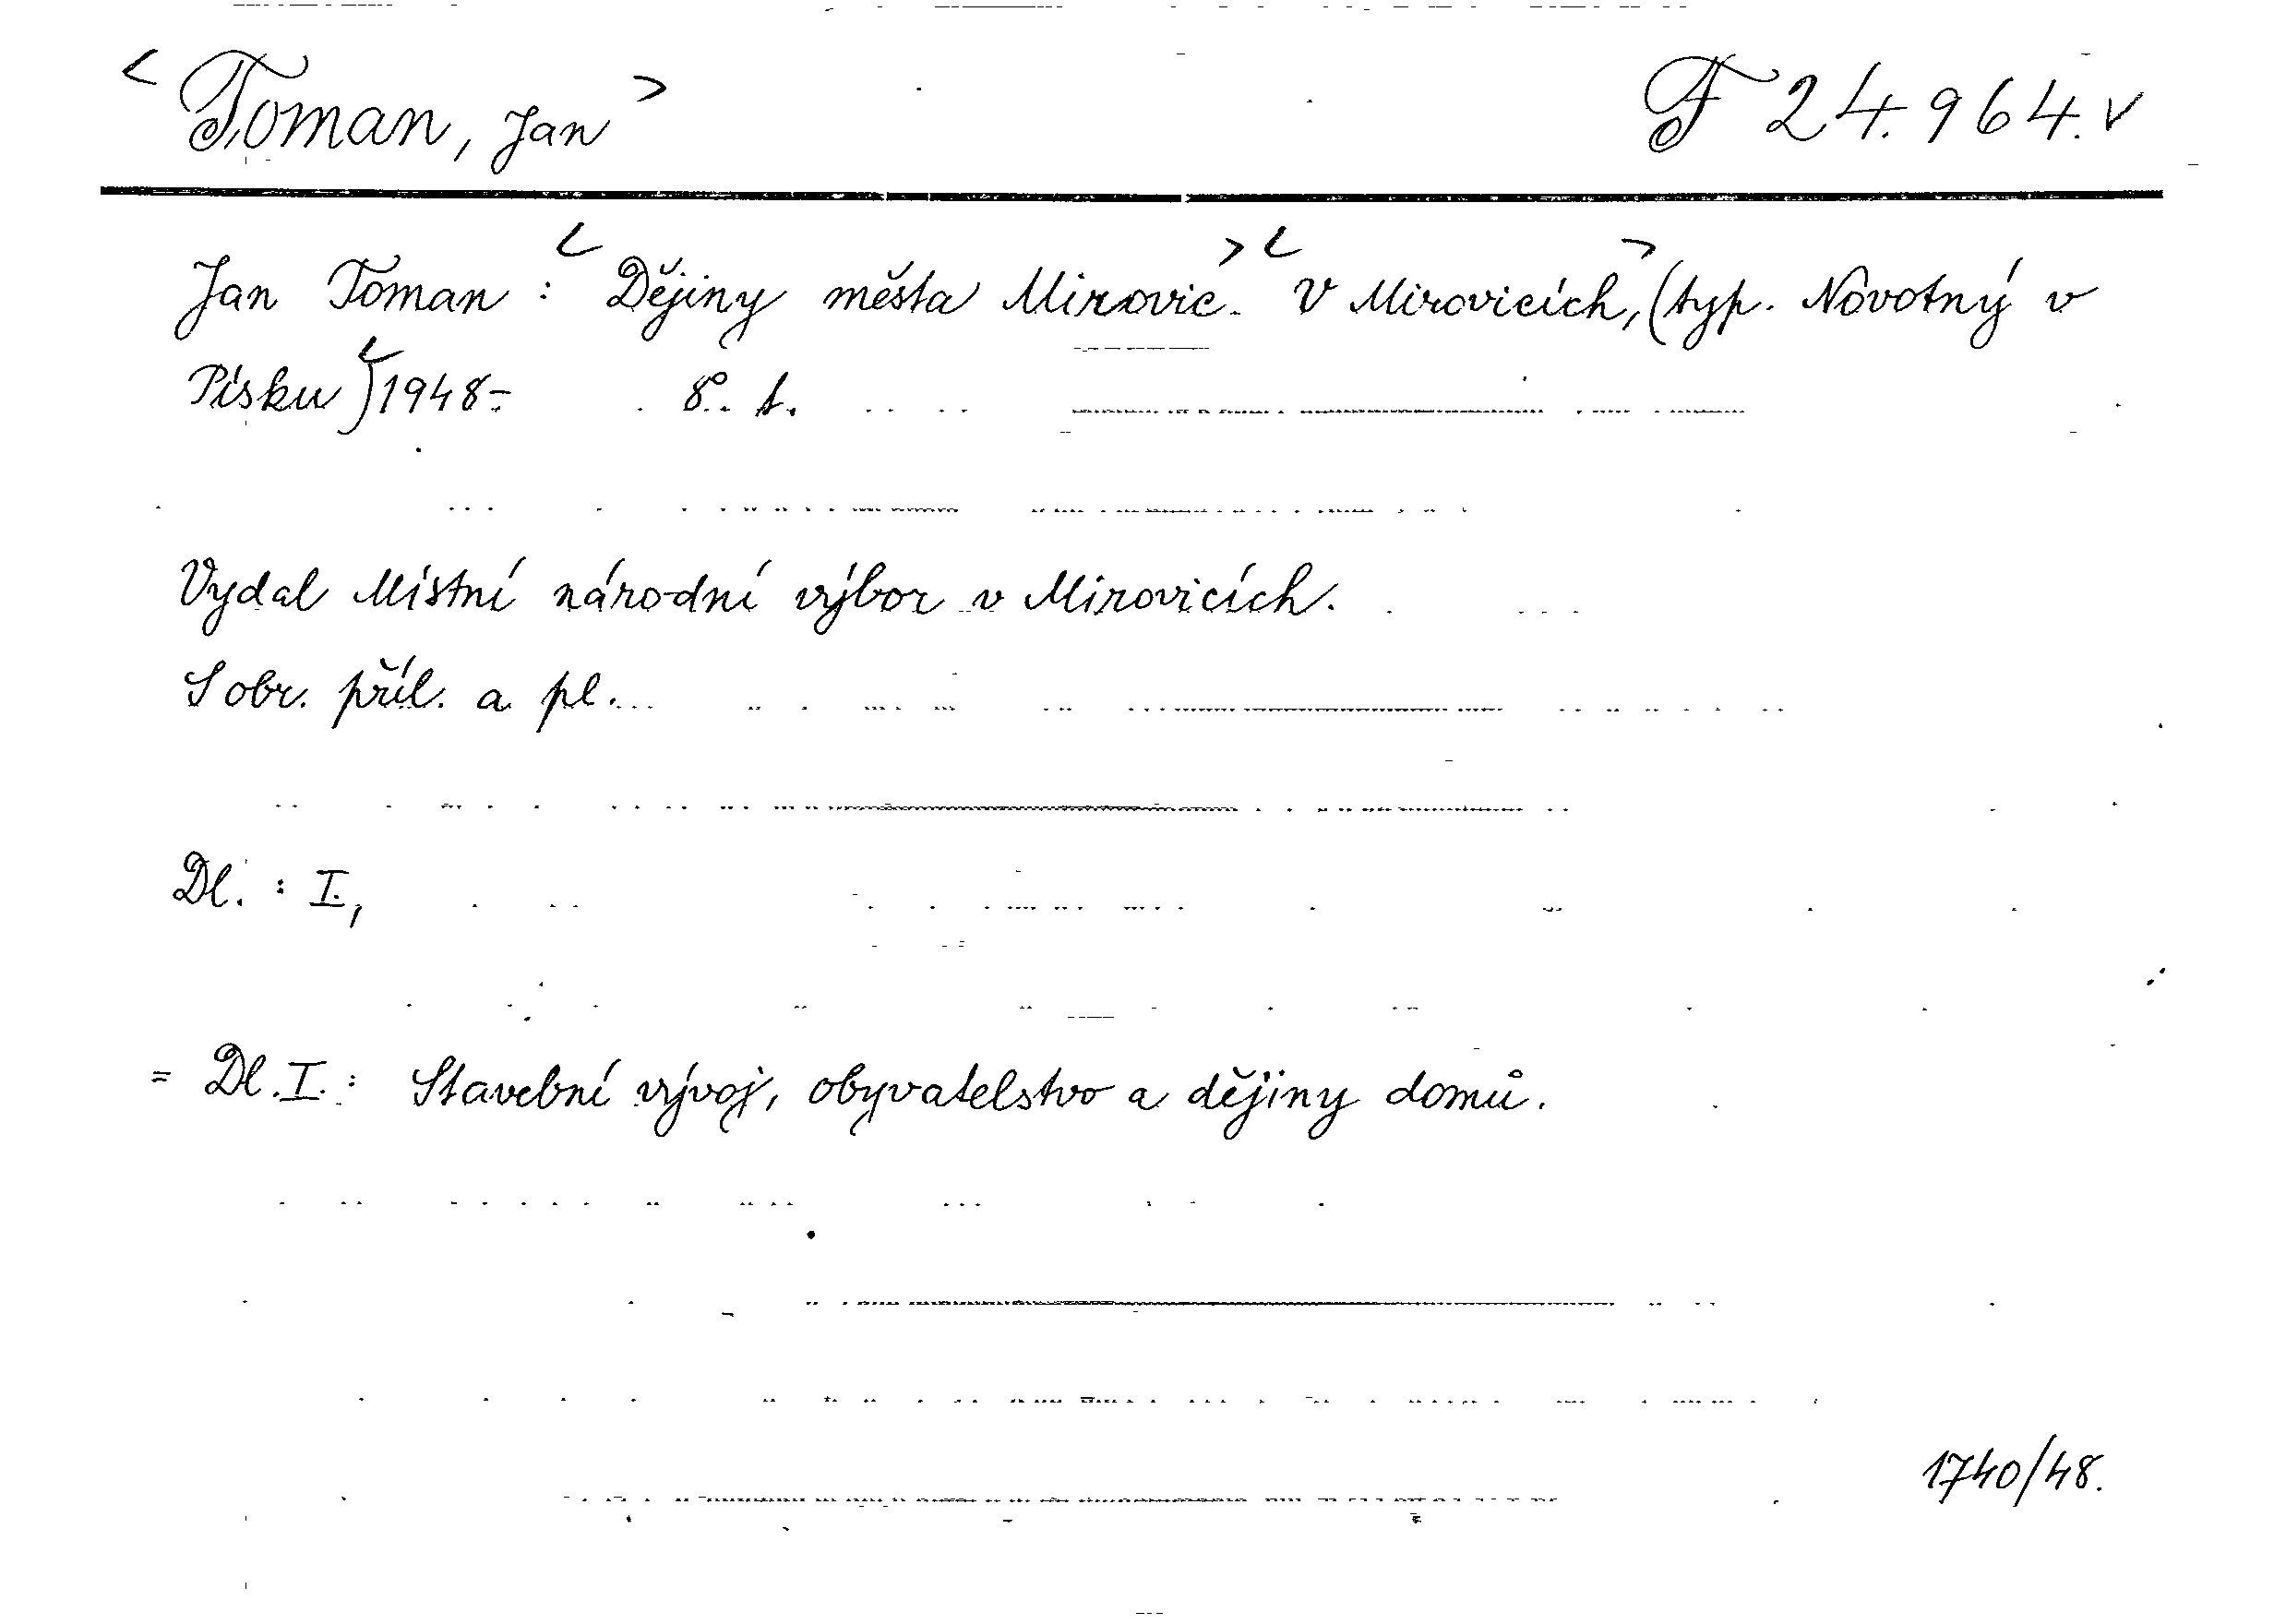 <Toman, Jan> F 24.964.v
Jan Toman: <Dějiny města Mirovic.> <V Mirovicích,> (typ. Novotný v
Písku) <1948-. 8°. t.
Vydal Místní národní výbor v Mirovicích.
S obr. příl. a pl.
Dl.: I.,
= Dl. I.: Stavební vývoj, obyvatelstvo a dějiny domů.
1740/48.